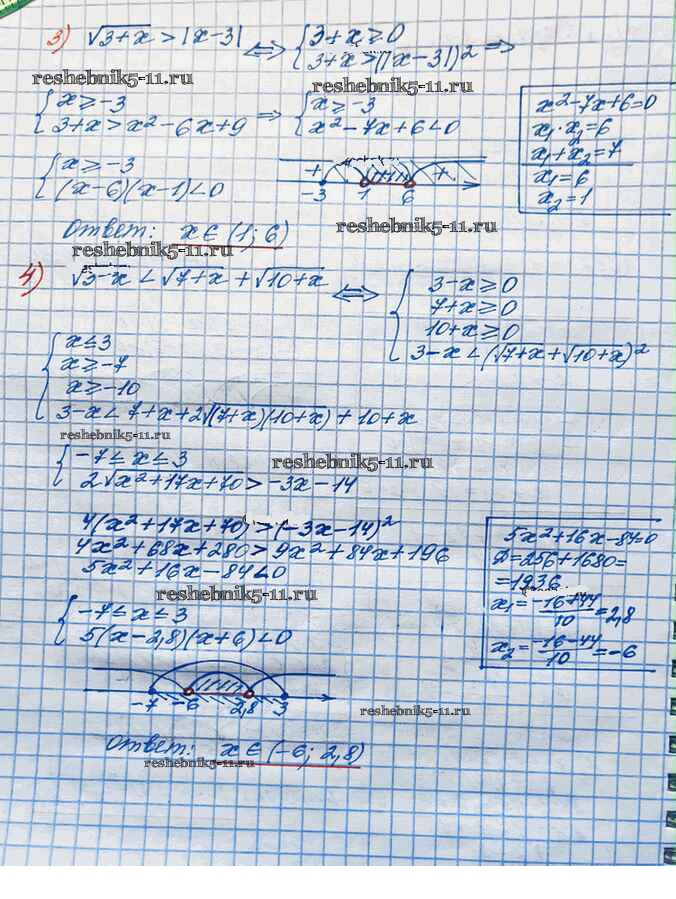 3) √3+x > |x-3| ⇔ { 3+x ≥ 0
3+x > (|x-3|)² ⇒
reshebnik5-11.ru
{ x ≥ -3
3+x > x²-6x+9
⇒ { x ≥ -3
x²-7x+6 < 0
reshebnik5-11.ru
x²-7x+6=0
x₁·x₂=6
x₁+x₂=7
x₁=6
x₂=1
{ x ≥ -3
(x-6)(x-1) < 0
+ +
-3 1 6
Ответ: x ∈ (1; 6)
reshebnik5-11.ru
reshebnik5-11.ru
4) √3-x < √7+x + √10+x ⇔ { 3-x ≥ 0
7+x ≥ 0
10+x ≥ 0
3-x < (√7+x + √10+x)²
{ x ≤ 3
x ≥ -7
x ≥ -10
3-x < 7+x+2√(7+x)(10+x) + 10+x
reshebnik5-11.ru
{ -7 ≤ x ≤ 3
2√x²+17x+70 > -3x-14
reshebnik5-11.ru
4(x²+17x+70) > (-3x-14)²
4x²+68x+280 > 9x²+84x+196
5x²+16x-84 < 0
reshebnik5-11.ru
5x²+16x-84=0
D=256+1680=
=1936
x₁= -16+44/10 = 2,8
x₂= -16-44/10 = -6
{ -7 ≤ x ≤ 3
5(x-2,8)(x+6) < 0
reshebnik5-11.ru
-7 -6 2,8 3
reshebnik5-11.ru
Ответ: x ∈ (-6; 2,8)
reshebnik5-11.ru